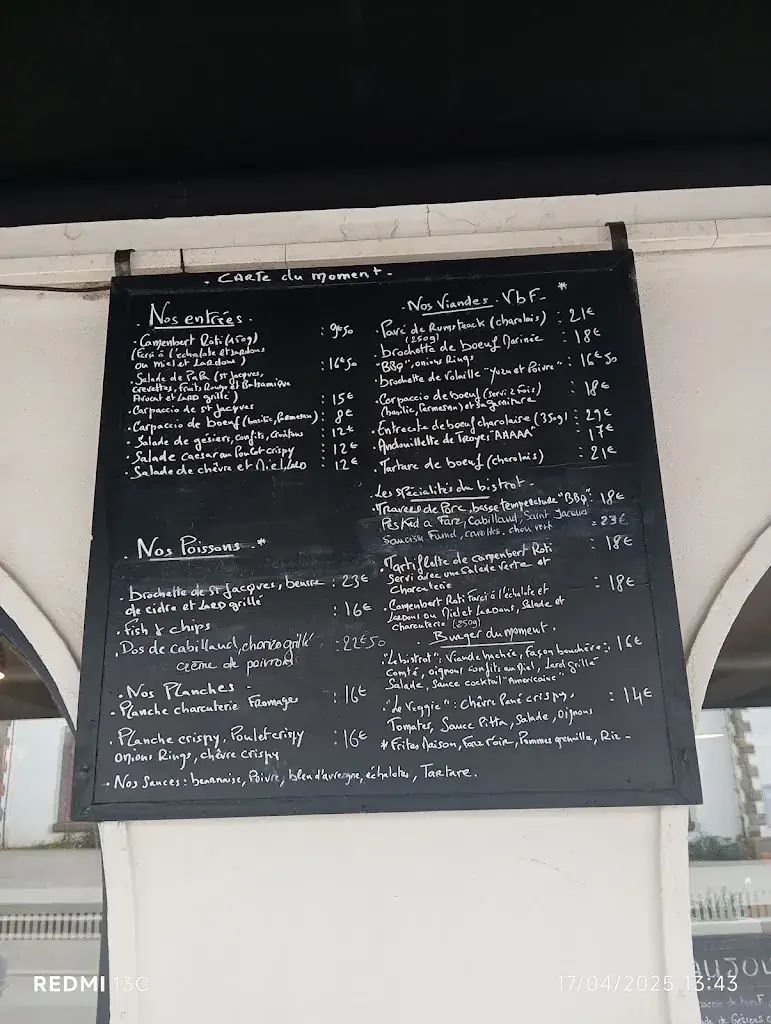 - CARTE du moment -
. Nos entrées.
. Camembert Rôti (150g) : 9€50
(Farci à l'échalote et lardons
ou miel et Lardons)
. Salade de PaPa (st Jacques, : 16€50
crevettes, Fruits Rouge et Balsamique
Avocat et Lard grillé)
. Carpaccio de st Jacques : 15€
. Carpaccio de boeuf (basilic, Parmesan) : 8€
. Salade de gésiers, confits, Croûtons : 12€
. Salade caesar au Poulet crispy : 12€
. Salade de chèvre et Miel, Lard : 12€
. Nos Poissons . *
. brochette de St Jacques, beurre : 23€
de cidre et Lard grillé
. Fish & chips : 16€
. Dos de cabillaud, chorizo grillé : 22€50
crème de poivrons
. Nos Planches -
. Planche charcuterie Fromage : 16€
. Planche crispy, Poulet crispy : 16€
onions Rings, chèvre crispy
. Nos Sauces : bearnaise, Poivre, bleu d'auvergne, échalotes, Tartare.
. Nos Viandes . VbF - *
. Pavé de Rumsteack (charolais) : 21€
(250g)
. brochette de boeuf Marinée : 18€
"BBQ", onions Rings
. brochette de Volaille "Yuzu et Poivre" : 16€50
. Carpaccio de boeuf (Servi 2 Fois) : 18€
(basilic, Parmesan) et sa garniture
. Entrecote de boeuf charolaise (350g) : 29€
. Andouillette de Troyes "AAAAA" : 17€
. Tartare de boeuf (charolais) : 21€
. Les spécialités du bistrot -
. Travers de Porc, basse température "BBQ" : 18€
Pesked a Farz, Cabillaud, Saint Jacques : 23€
Saucisse Fumé, carottes, chou vert
. Tartiflette de camembert Roti : 18€
Servi avec une Salade Verte et
Charcuterie
. Camembert Roti Farci à l'échalote et : 18€
Lardons ou Miel et Lardons, Salade et
charcuterie (250g)
Burger du moment .
. "Le bistrot" : Viande hachée, Façon bouchère : 16€
Comté, oignons confits au Miel, Lard grillé
Salade, Sauce cocktail "Americaine"
. "Le Veggie" : Chèvre Pané crispy, : 14€
Tomates, Sauce Pitta, Salade, Oignons
* Frites Maison, Farz Noir, Pommes grenaille, Riz -
REDMI 13C
17/04/2025 13:43